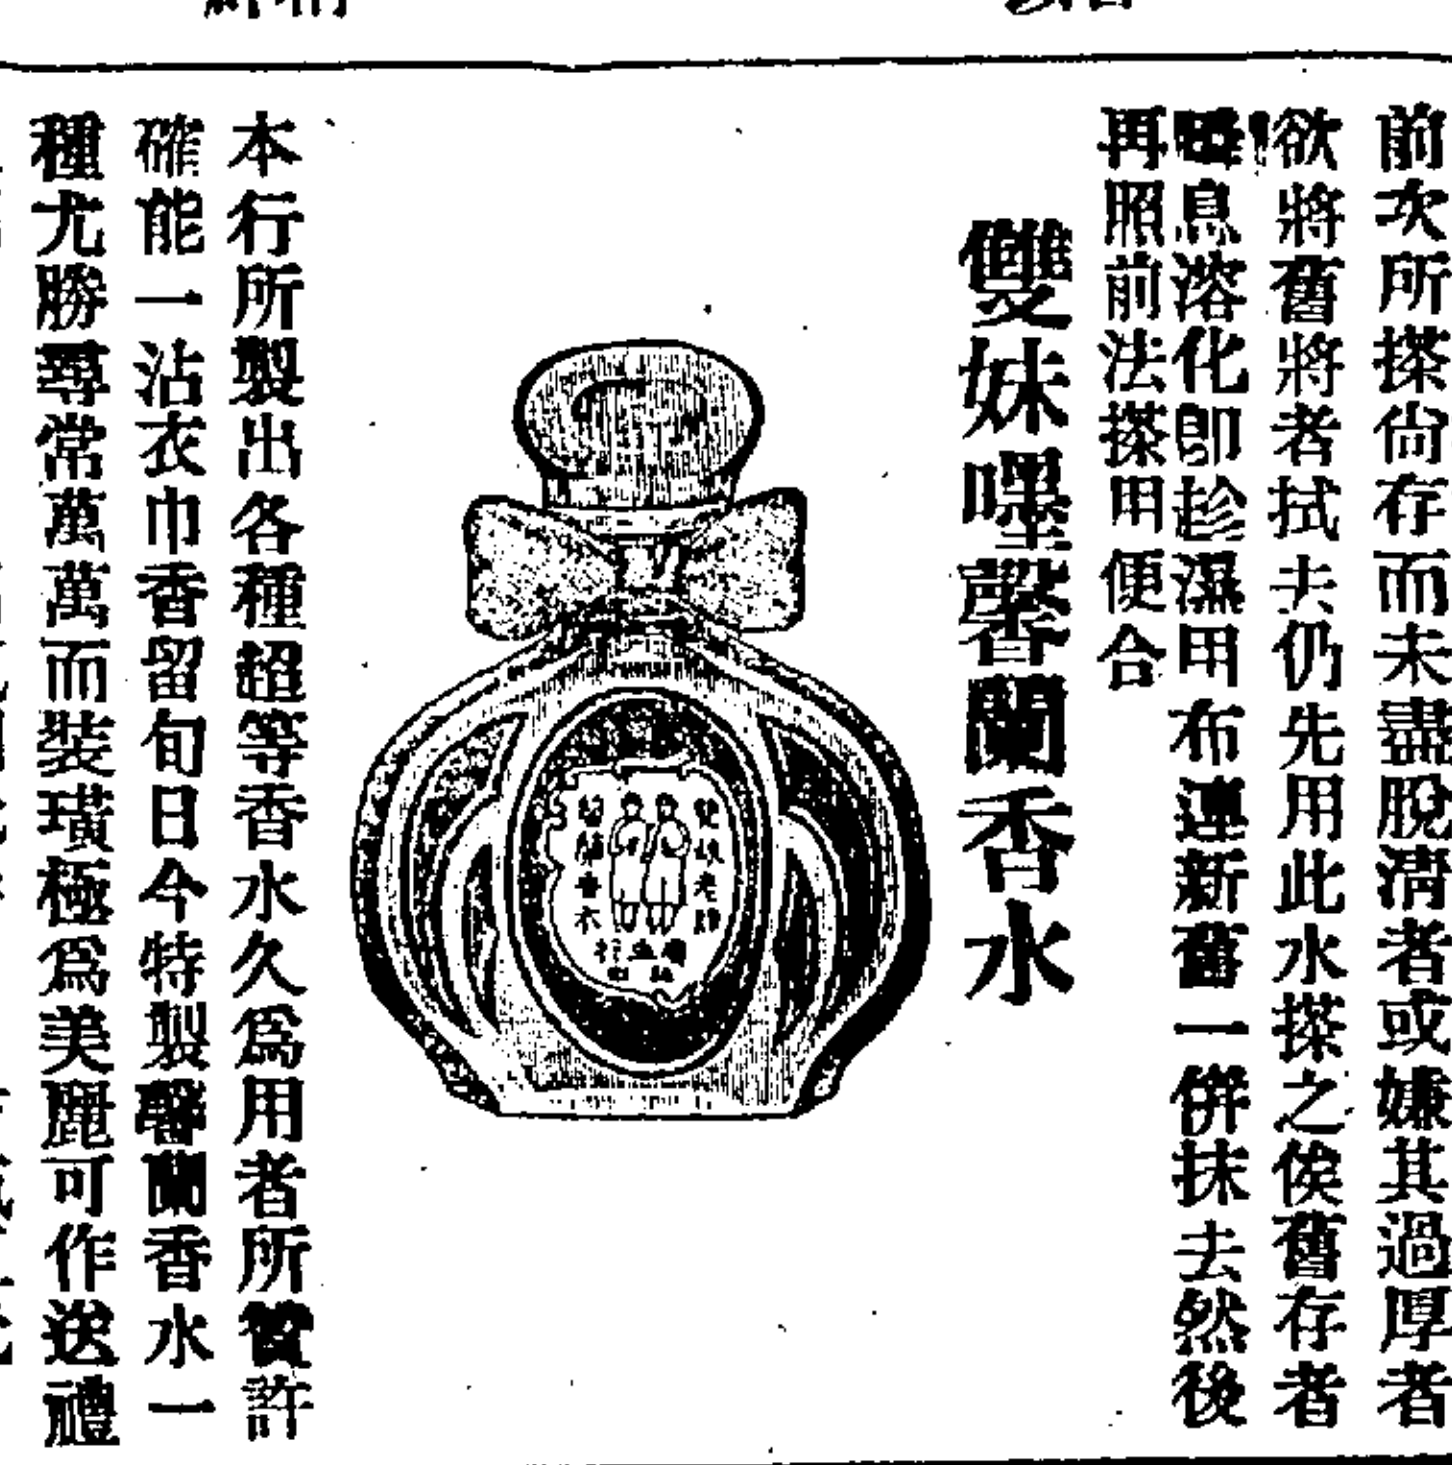 前次所搽尙存而未盡脫淸者或嫌其過厚者
欲將舊將者拭去仍先用此水搽之俟舊存者
瞬息溶化卽趁濕用布連新舊一倂抹去然後
再照前法搽用便合
雙妹嚜馨蘭香水
雙妹老牌
本行所製出各種超等香水久爲用者所贊許
確能一沾衣巾香留旬日今特製馨蘭香水一
種尤勝尋常萬萬而裝璜極爲美麗可作送禮